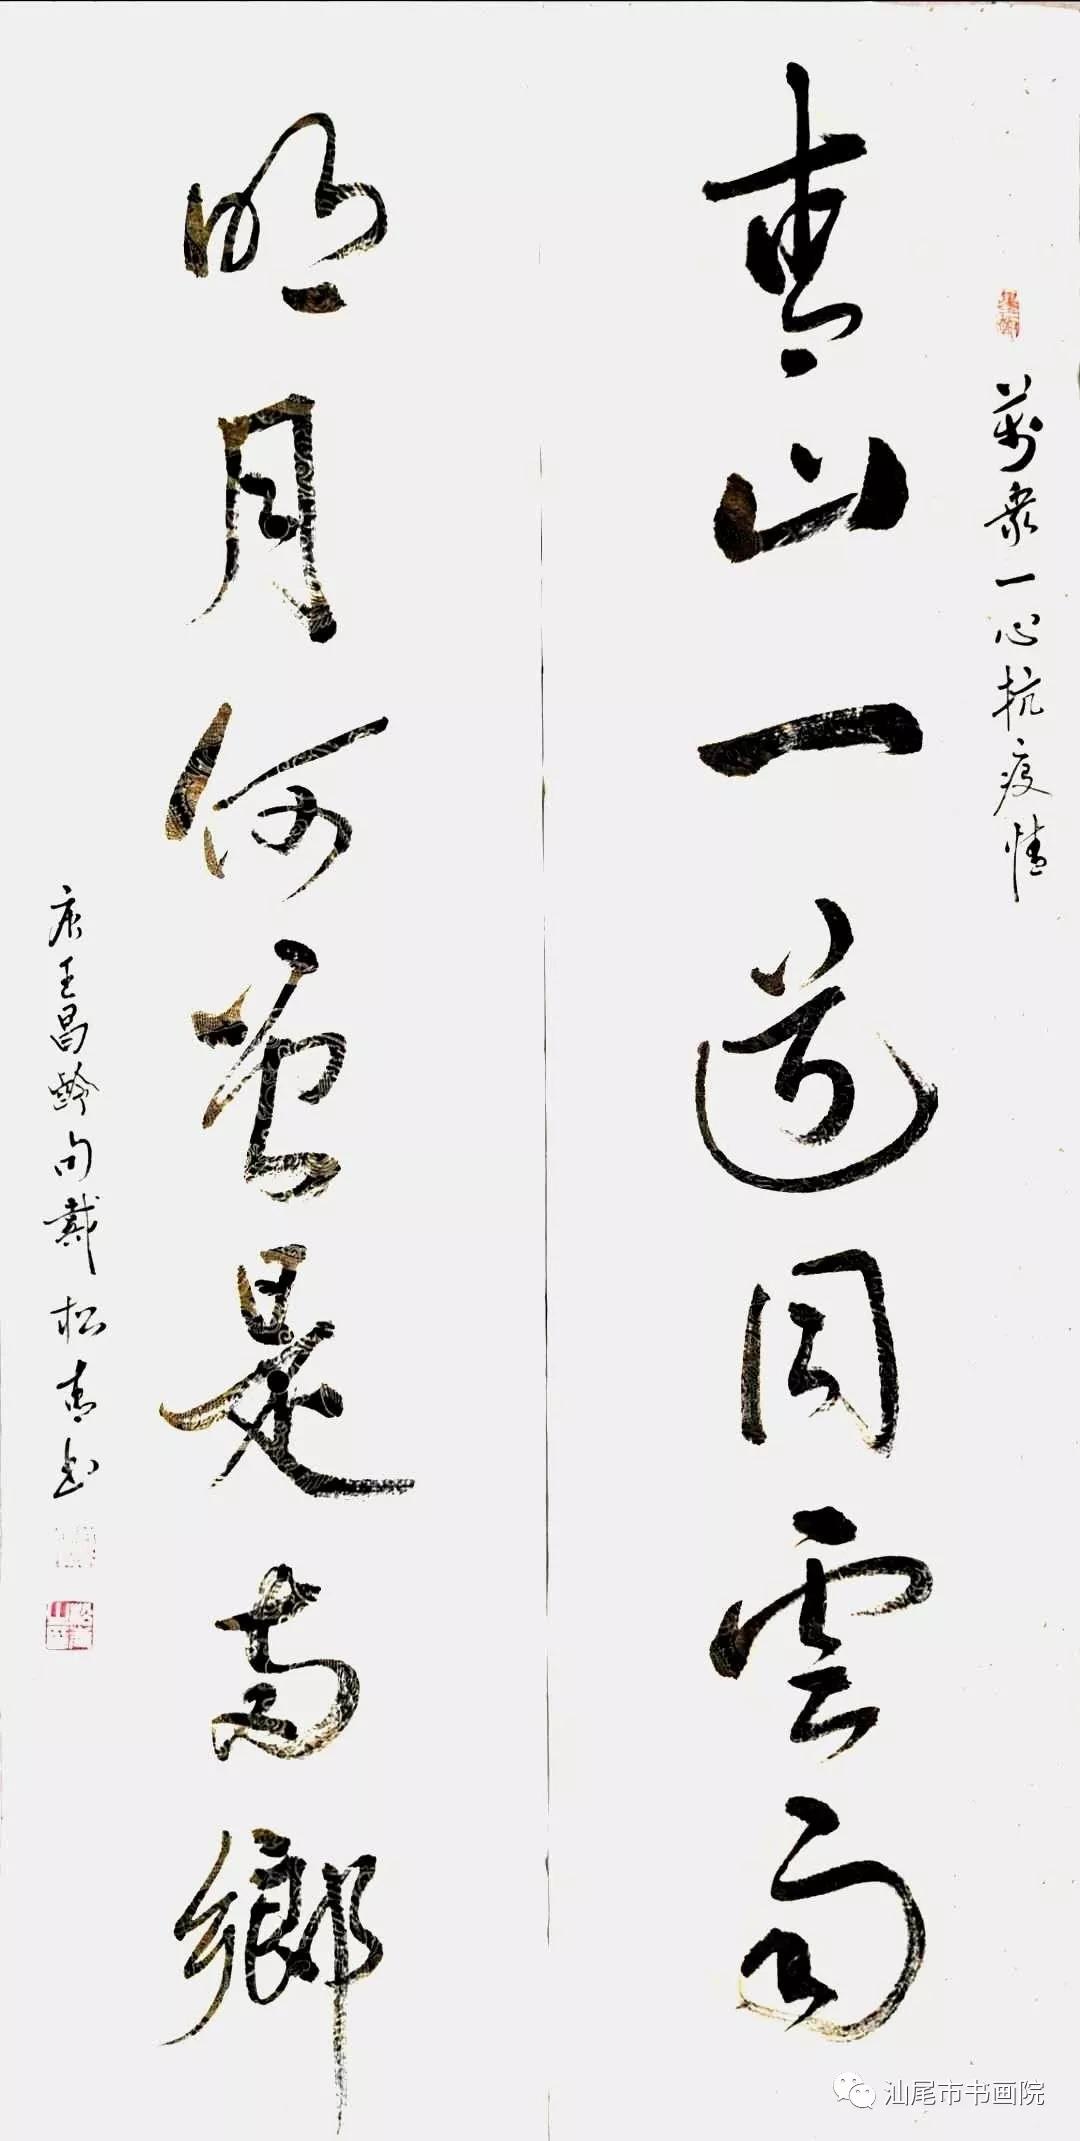 萬衆一心抗疫情
青山一道同雲雨
明月何曾是兩鄉
唐王昌齡句戴松青书
汕尾市书画院